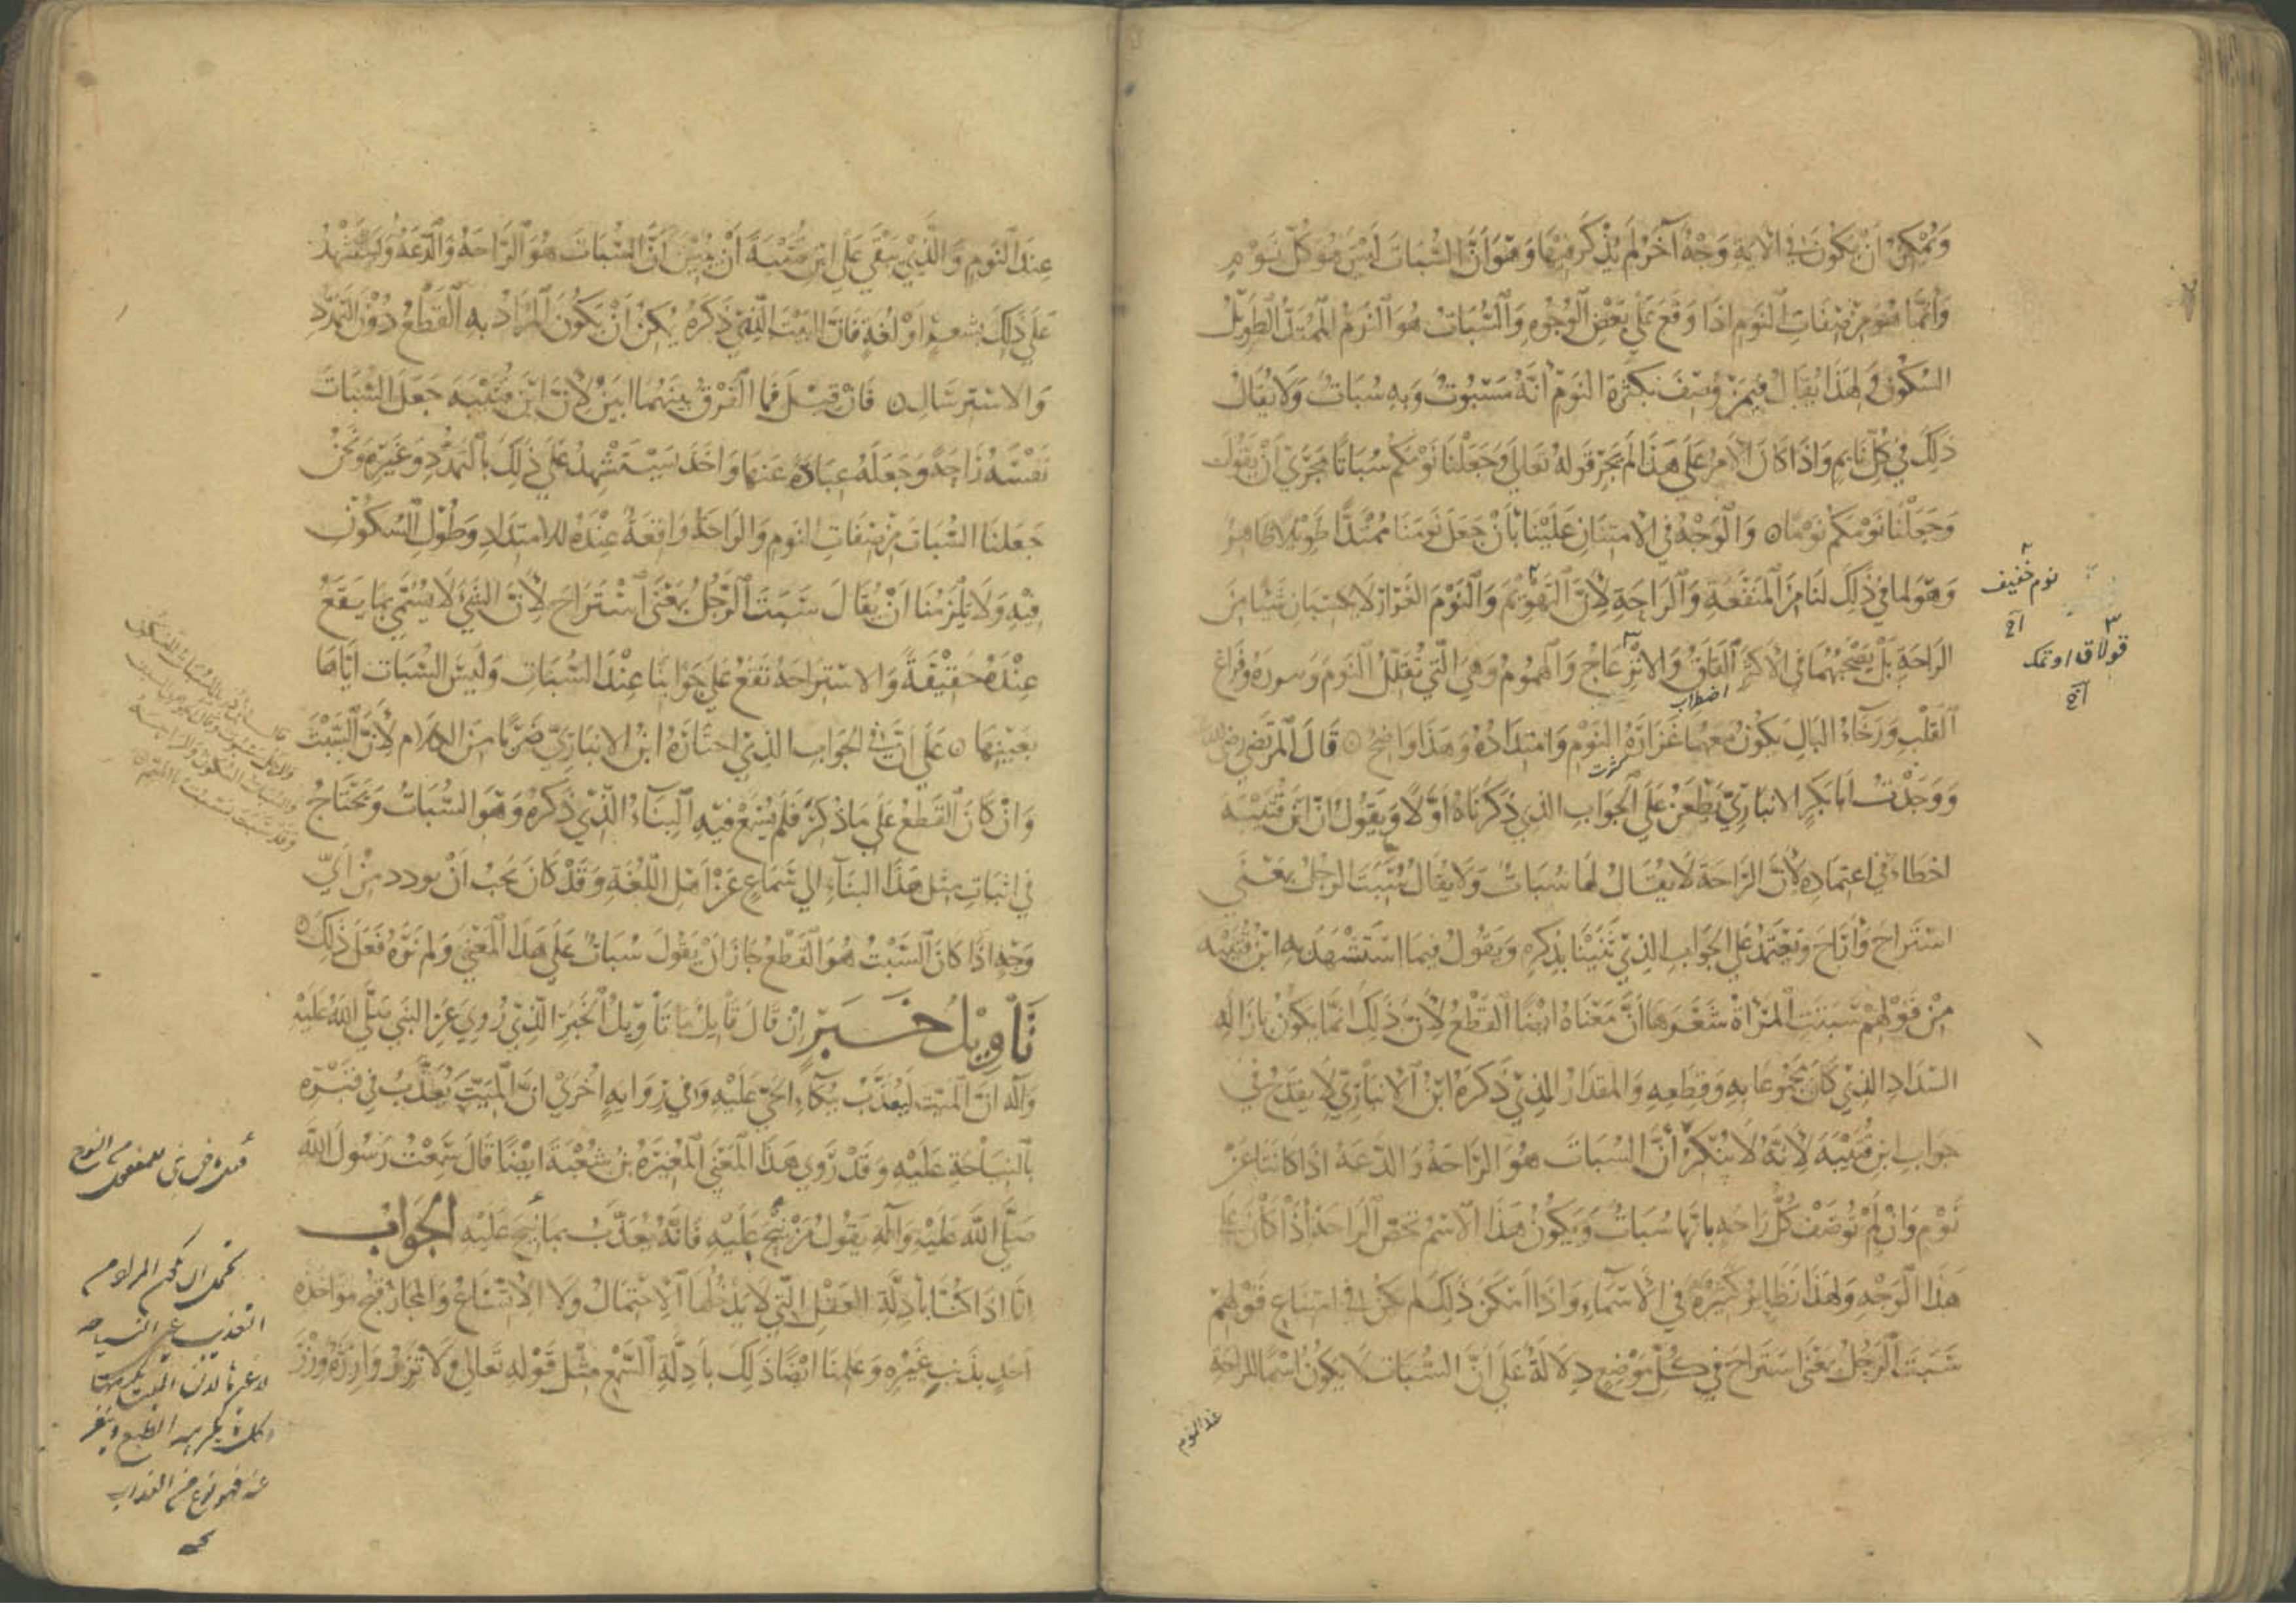 ويمكن ان يكون في الاية وجه آخر لم يذكر فيها وهو ان السبات ليس هو كل نوم
وانما هو من صفات النوم اذا وقع على بعض الوجوه والسبات هو النوم الممتد الطويل
السكون ولهذا يقال فيمن وصف بكثرة النوم انه مسبوت وبه سبات ولا يقال
ذلك في كل نايم واذا كان الامر على هذا لم يجر قوله تعالى وجعلنا نومكم سباتا مجرى ان يقول
وجعلنا نومكم نوما ٥ والوجه في الامتنان علينا بأن جعل نومنا ممتدا طويلا ظاهر
وهو لما في ذلك لنا من المنفعة والراحة لأن التهويم والنوم الغرار لا يكسبان شيئا من
الراحة بل يصحبهما في الاكثر القلق والانزعاج والهموم وهي التي تقلل النوم وسوره وفراغ
القلب ورخاء البال يكون معهما غزارة النوم وامتداده وهذا واضح ٥ قال المرتضى رضي الله
ووجدت ابا بكر الانباري يطعن على الجواب الذي ذكرناه اولا ويقول ان ابن قتيبة
اخطاء في اعتماده لأن الراحة لا يقال لها سبات ولا يقال سبت الرجل بمعنى
استراح وأراح ويعتمد على الجواب الذي ثنينا بذكره ويقول فيما استشهد به ابن قتيبه
من قولهم سبتت المرأة شعرها أن معناه ايضا القطع لأن ذلك انما يكون بازالة
الشداد الذي كان مجموعا به وقطعه والمقدار الذي ذكره ابن الانباري لا يقدح في
جواب ابن قتيبة لأنه لا ينكر أن السبات هو الراحة والدعة اذا كانتا عن
نوم وان لم توصف كل راحة بانها سبات ويكون هذا الاسم يخص الراحة اذا كان على
هذا الوجه ولهذا نظاير كثيرة في الأسماء واذا امكن ذلك لم يكن في امتناع قولهم
سبت الرجل بمعنى استراح في كل موضع دلالة على أن السبات لا يكون اسما للراحة
عند النوم
نوم خفيف
٣
قولاق اوتمك
اضطراب
كثرت
عند النوم والذي يبقى على ابن قتيبة أن يبين أن السبات هو الراحة والدعة ويستشهد
على ذلك بشعر او لغة فان البيت الذي ذكره يمكن أن يكون المراد به القطع دون التمدد
والاسترسال ٥ فان قيل فما الفرق بينهما ابين لأن ابن قتيبة جعل السبات
نفسه راحة وجعله عبارة عنها واخذ يستشهد على ذلك بالتمدد وغيره ونحن
جعلنا السبات من صفات النوم والراحة واقعة عنده للامتداد وطول السكون
فيه ولا يلزمنا أن يقال سبت الرجل بمعنى استراح لأن الشيء لا يسمى بما يقع
عنده حقيقة والاستراحة تقع على جوابنا عند السبات وليس السبات اياها
بعينها ٥ على أن في الجواب الذي اختاره ابن الانباري ضربا من الكلام لأن السبت
وان كان القطع على ما ذكر فلم يسمع فيه البناء الذي ذكره وهو السبات ويحتاج
في اثبات مثل هذا البناء الي سماع عن اهل اللغة وقد كان يجب أن يورد من أي
وجه اذا كان السبت هو القطع جاز ان يقول سبات على هذا المعنى ولم نره فعل ذلك ٥
تأويل خبر ان قال قايل ما تأويل الخبر الذي روي عن النبي صلى الله عليه
وآله ان الميت ليعذب ببكاء الحي عليه وفي رواية اخرى ان الميت يعذب في قبره
بالنياحة عليه وقد روى هذا المعنى المغيرة بن شعبة ايضا قال سمعت رسول الله
صلى الله عليه وآله يقول من نيح عليه فانه يعذب بما نيح عليه الجواب
انا اذا كنا بأدلة العقل التي لا يدخلها الاحتمال ولا الاتساع والمجاز قبح مواخذه
احد بذنب غيره وعلمنا ايضا ذلك بأدلة السمع مثل قوله تعالى ولا تزر وازرة وزر
والسبات السكون والراحة
يحتمل ان يكون المراد من
التعذيب على النياحه
عنه فهو نوع من العذاب